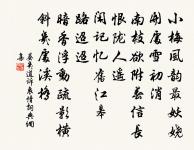 小梅風韻最妖嬈
開處雪初消
南枝欲附春信長
恨隴人遙
閒記憶舊江皋
路迢迢
暗香浮動疏影橫
斜幾處溪橋
晏幾道訴衷情詞典網
集